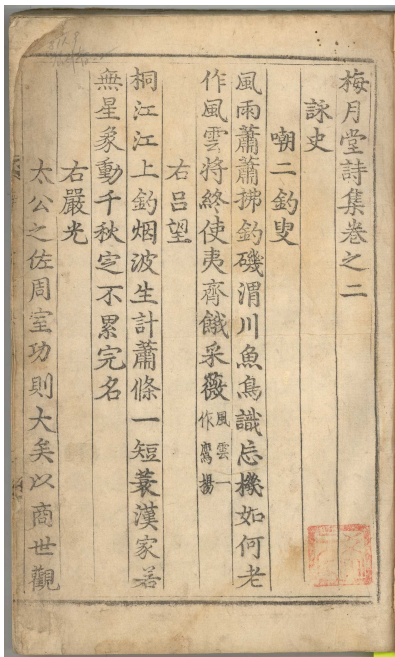 梅月堂詩集卷之二
詠史
嘲二釣叟
風雨蕭蕭拂釣磯渭川魚鳥識忘機如何老
作風雲將終使夷齊餓采薇風雲一作鷹揚
右呂望
桐江江上釣烟波生計蕭條一短蓑漢家若
無星象動千秋定不累完名
右嚴光
太公之佐周室功則大矣以商世觀